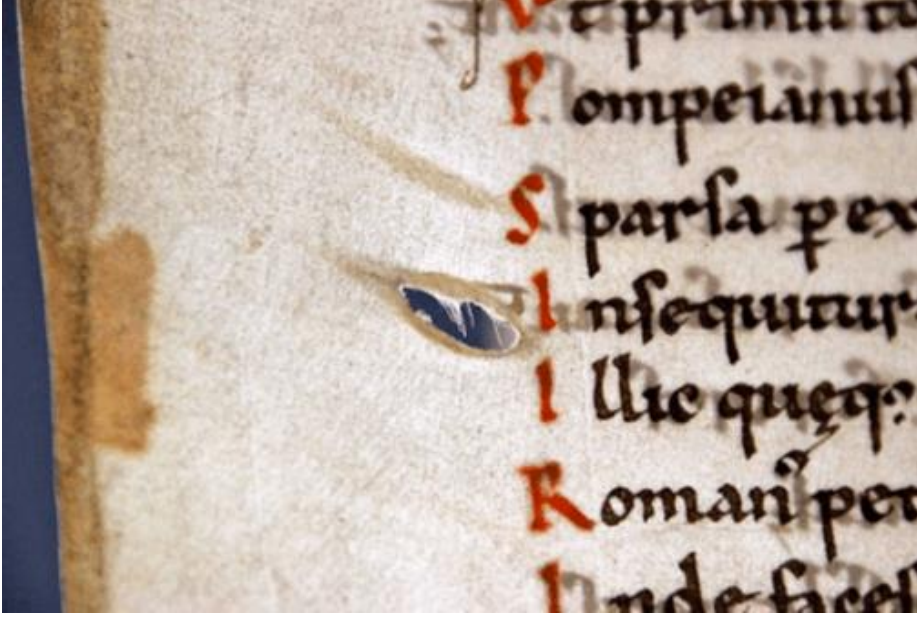 Vt primū
Pompeianuſ
Sparſa ꝑ ex
Inſequitur
Illic quęq:
Roman᷒ pet
Inde faceſ